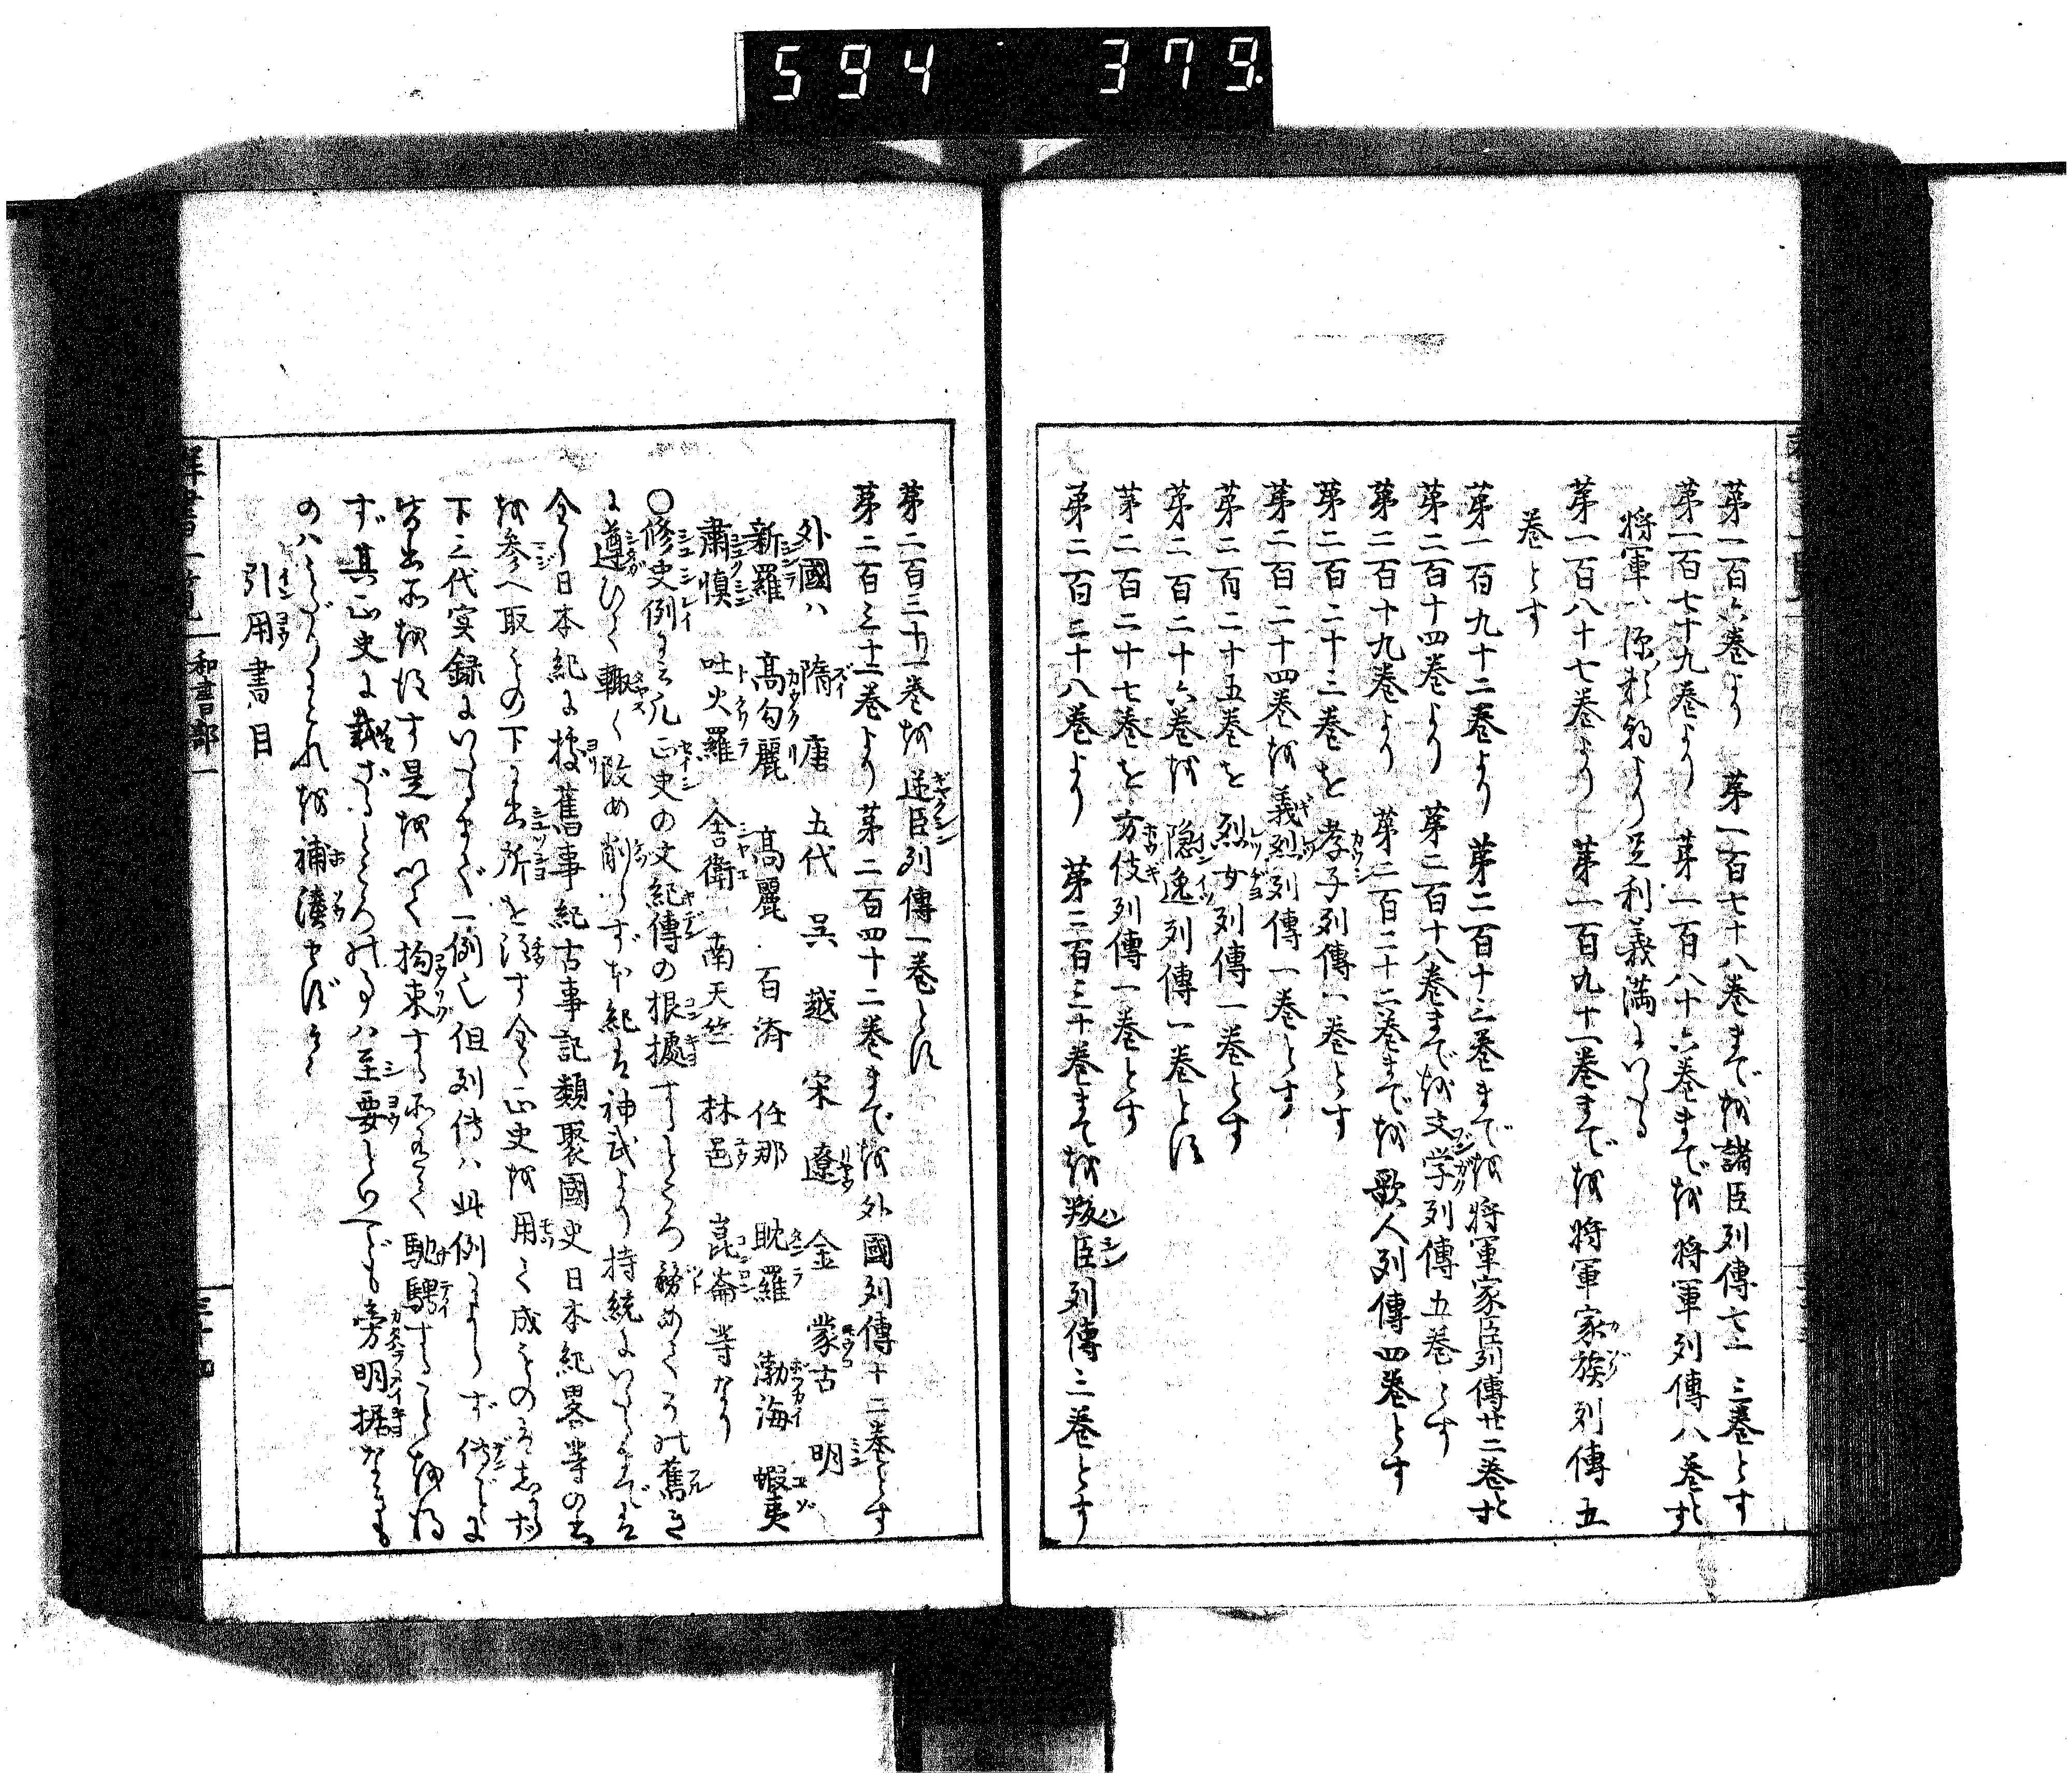 594 379
第一百六巻より 第一百七十八巻まで を諸臣列傳七十三巻とす
第一百七十九巻より 第一百八十六巻まで を 将軍列傳八巻とす
将軍ハ源頼朝より足利義満にいたる
第一百八十七巻より 第一百九十一巻まで を 将軍家族列傳五
巻とす
第一百九十二巻より 第二百十三巻まで を将軍家臣列傳廿二巻とす
第二百十四巻より 第二百十八巻まで を文学列傳五巻とす
第二百十九巻より 第二百二十二巻まで を 歌人列傳四巻とす
第二百二十三巻を 孝子列傳一巻とす
第二百二十四巻を 義烈列傳一巻とす
第二百二十五巻を 烈女列傳一巻とす
第二百二十六巻を 隠逸列傳一巻とす
第二百二十七巻を 方伎列傳一巻とす
第二百二十八巻より 第二百三十巻まて を 叛臣列傳三巻とす
第二百三十一巻を 逆臣列傳一巻とす
第二百三十二巻より第二百四十二巻まで を外國列傳十二巻とす
外國ハ 隋 唐 五代 呉 越 宋 遼 金 蒙古 明
新羅 高勾麗 高麗 百済 任那 耽羅 渤海 蝦夷
肅慎 吐火羅 舎衛 南天竺 林邑 崑崙 等なり
○修史例に云凡正史の文紀傳の根據するところ務めてその舊き
に遵ひて輙く改め削らず本紀は神武より持統にいたるまでは
全く日本紀に據 舊事紀古事記類聚國史日本紀畧等の書
を参へ取その下に出所を注す全く正史を用て成ものは
下三代実録にいたるまで一例也但列傳ハ此例にあらず
皆出所を注す是をいて拘束する所なく馳騁することを得
ず其正史に載ざるところの事ハ至要といへども旁明據なきも
のハ を補湊せばなり
引用書目
群書一覧 和書部一 三十四